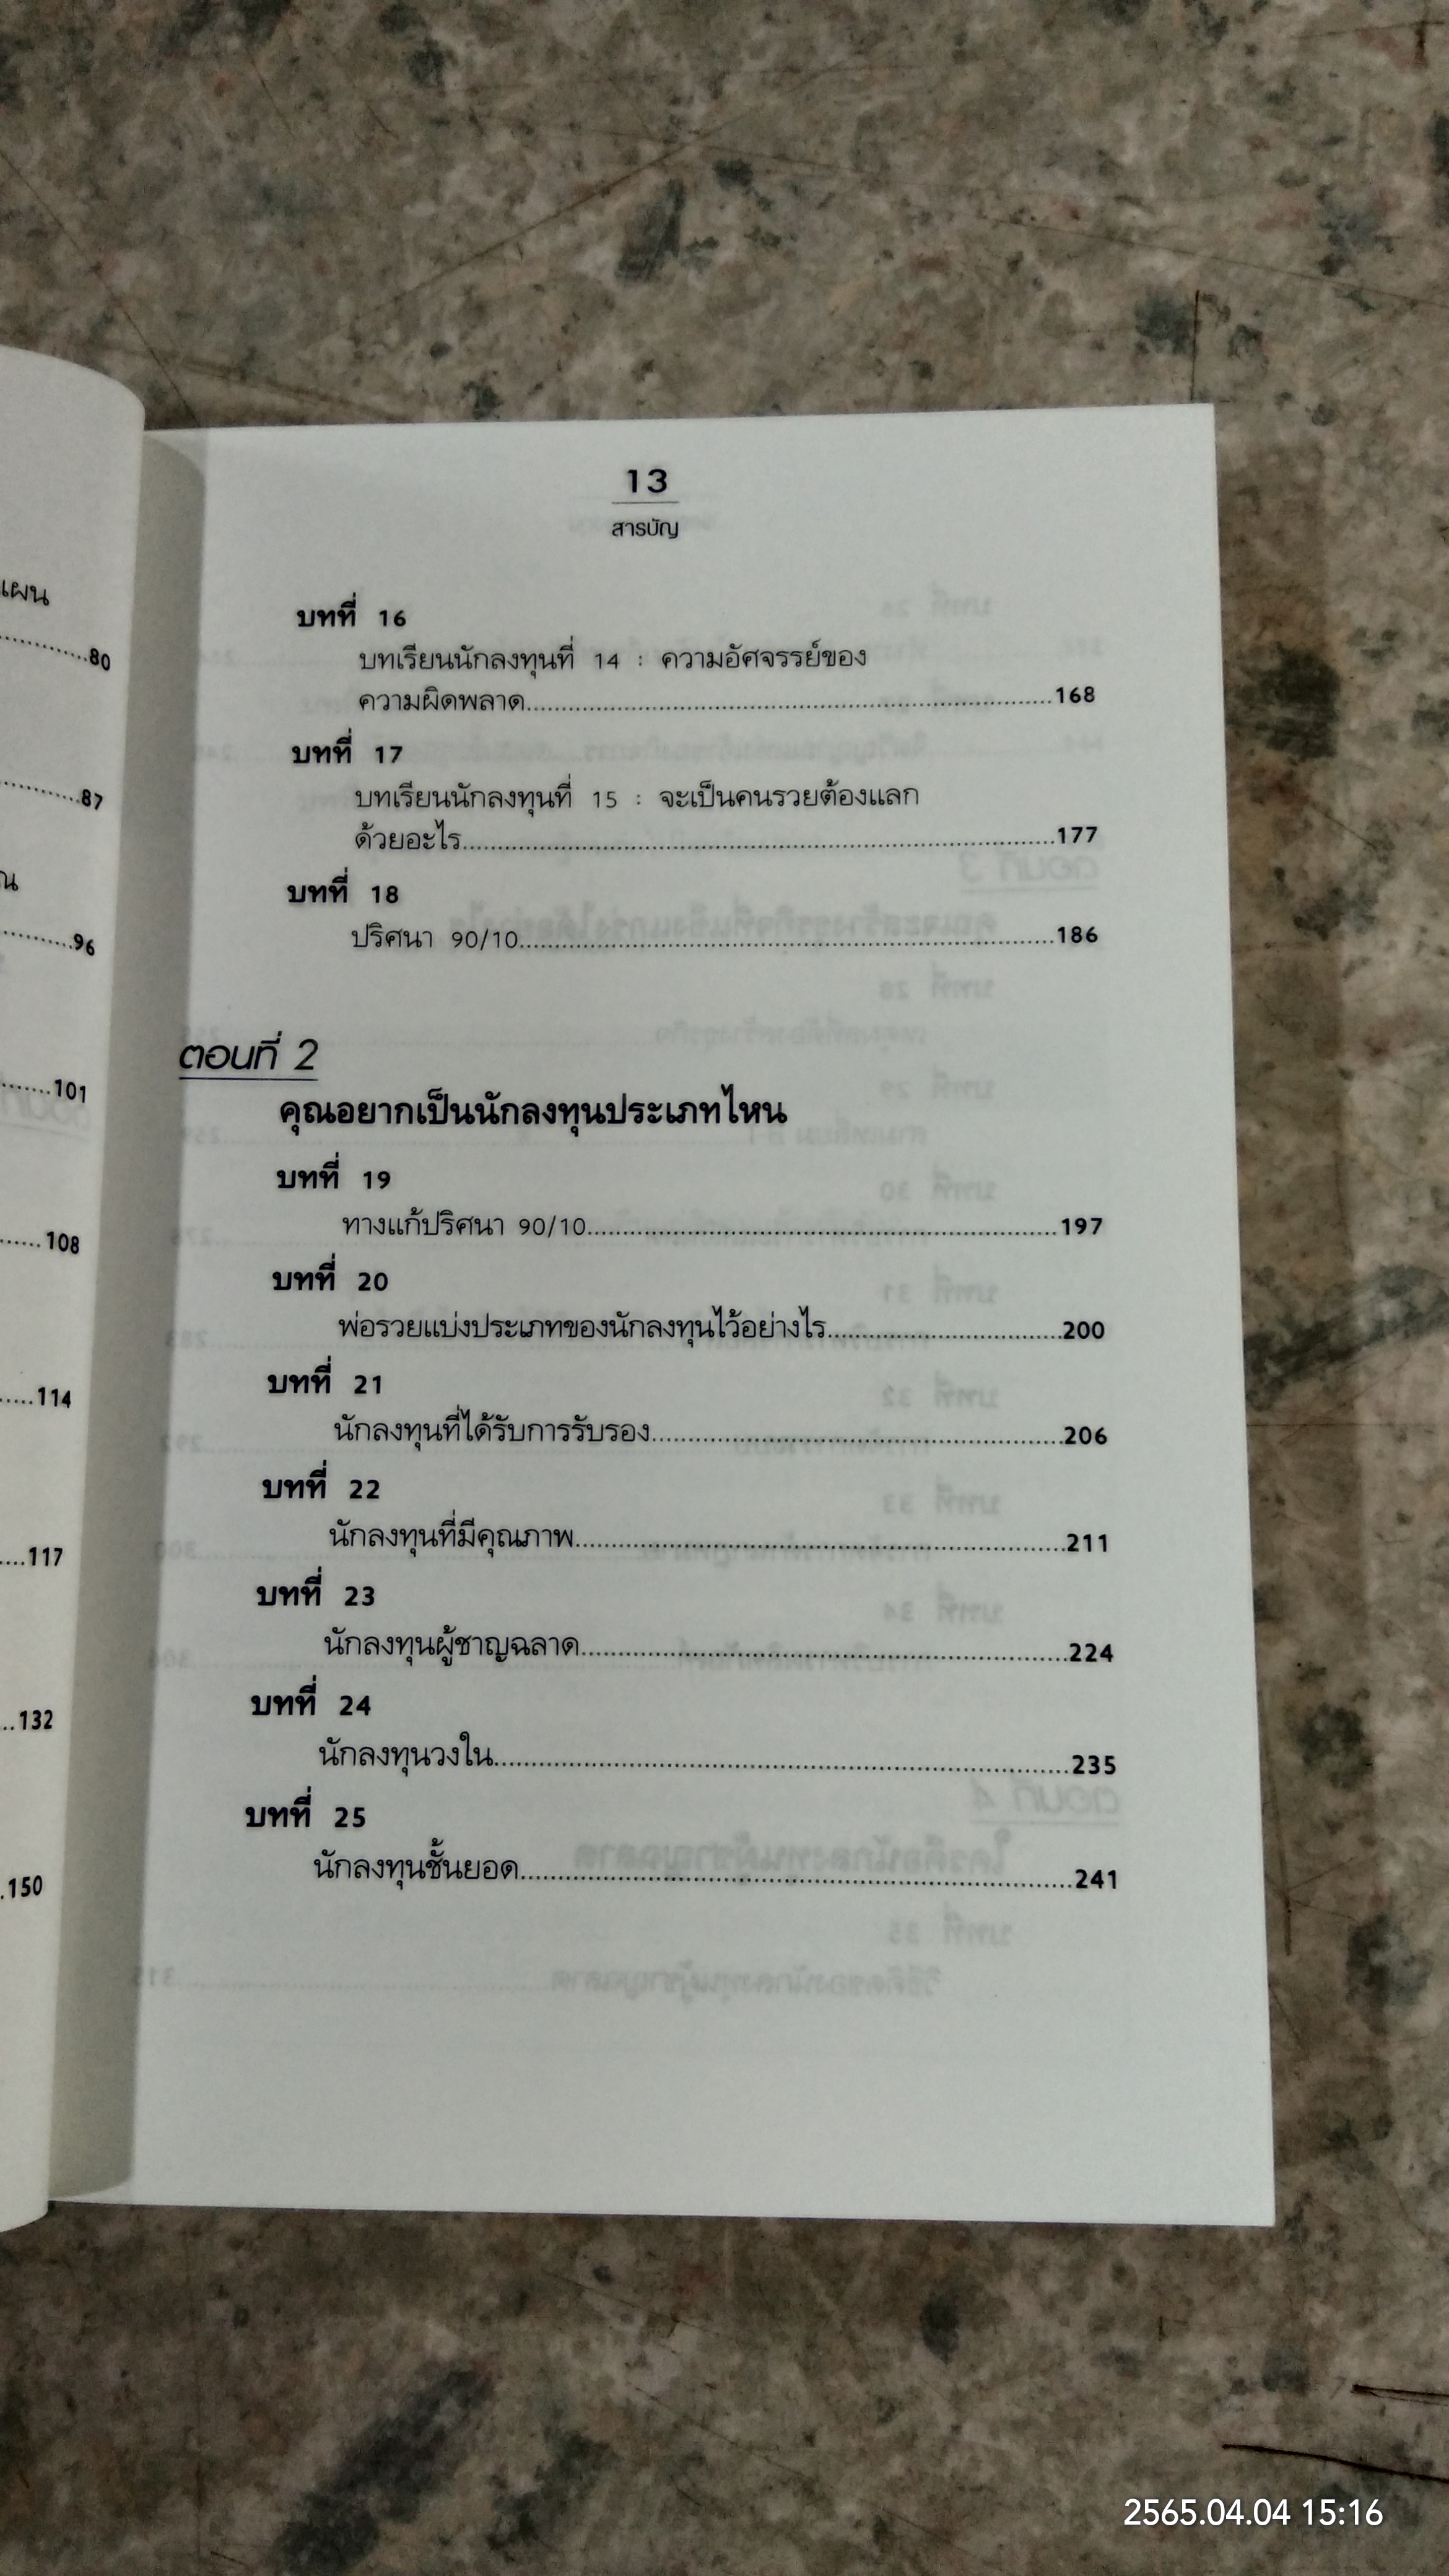 แผน
80
87
ณ
96
101
108
114
117
132
150
13
สารบัญ
บทที่ 16
บทเรียนนักลงทุนที่ 14 : ความอัศจรรย์ของ
ความผิดพลาด...............168
บทที่ 17
บทเรียนนักลงทุนที่ 15 : จะเป็นคนรวยต้องแลก
ด้วยอะไร...............177
บทที่ 18
ปริศนา 90/10...............186
ตอนที่ 2
คุณอยากเป็นนักลงทุนประเภทไหน
บทที่ 19
ทางแก้ปริศนา 90/10...............197
บทที่ 20
พ่อรวยแบ่งประเภทของนักลงทุนไว้อย่างไร...............200
บทที่ 21
นักลงทุนที่ได้รับการรับรอง...............206
บทที่ 22
นักลงทุนที่มีคุณภาพ...............211
บทที่ 23
นักลงทุนผู้ชาญฉลาด...............224
บทที่ 24
นักลงทุนวงใน...............235
บทที่ 25
นักลงทุนชั้นยอด...............241
2565.04.04 15:16